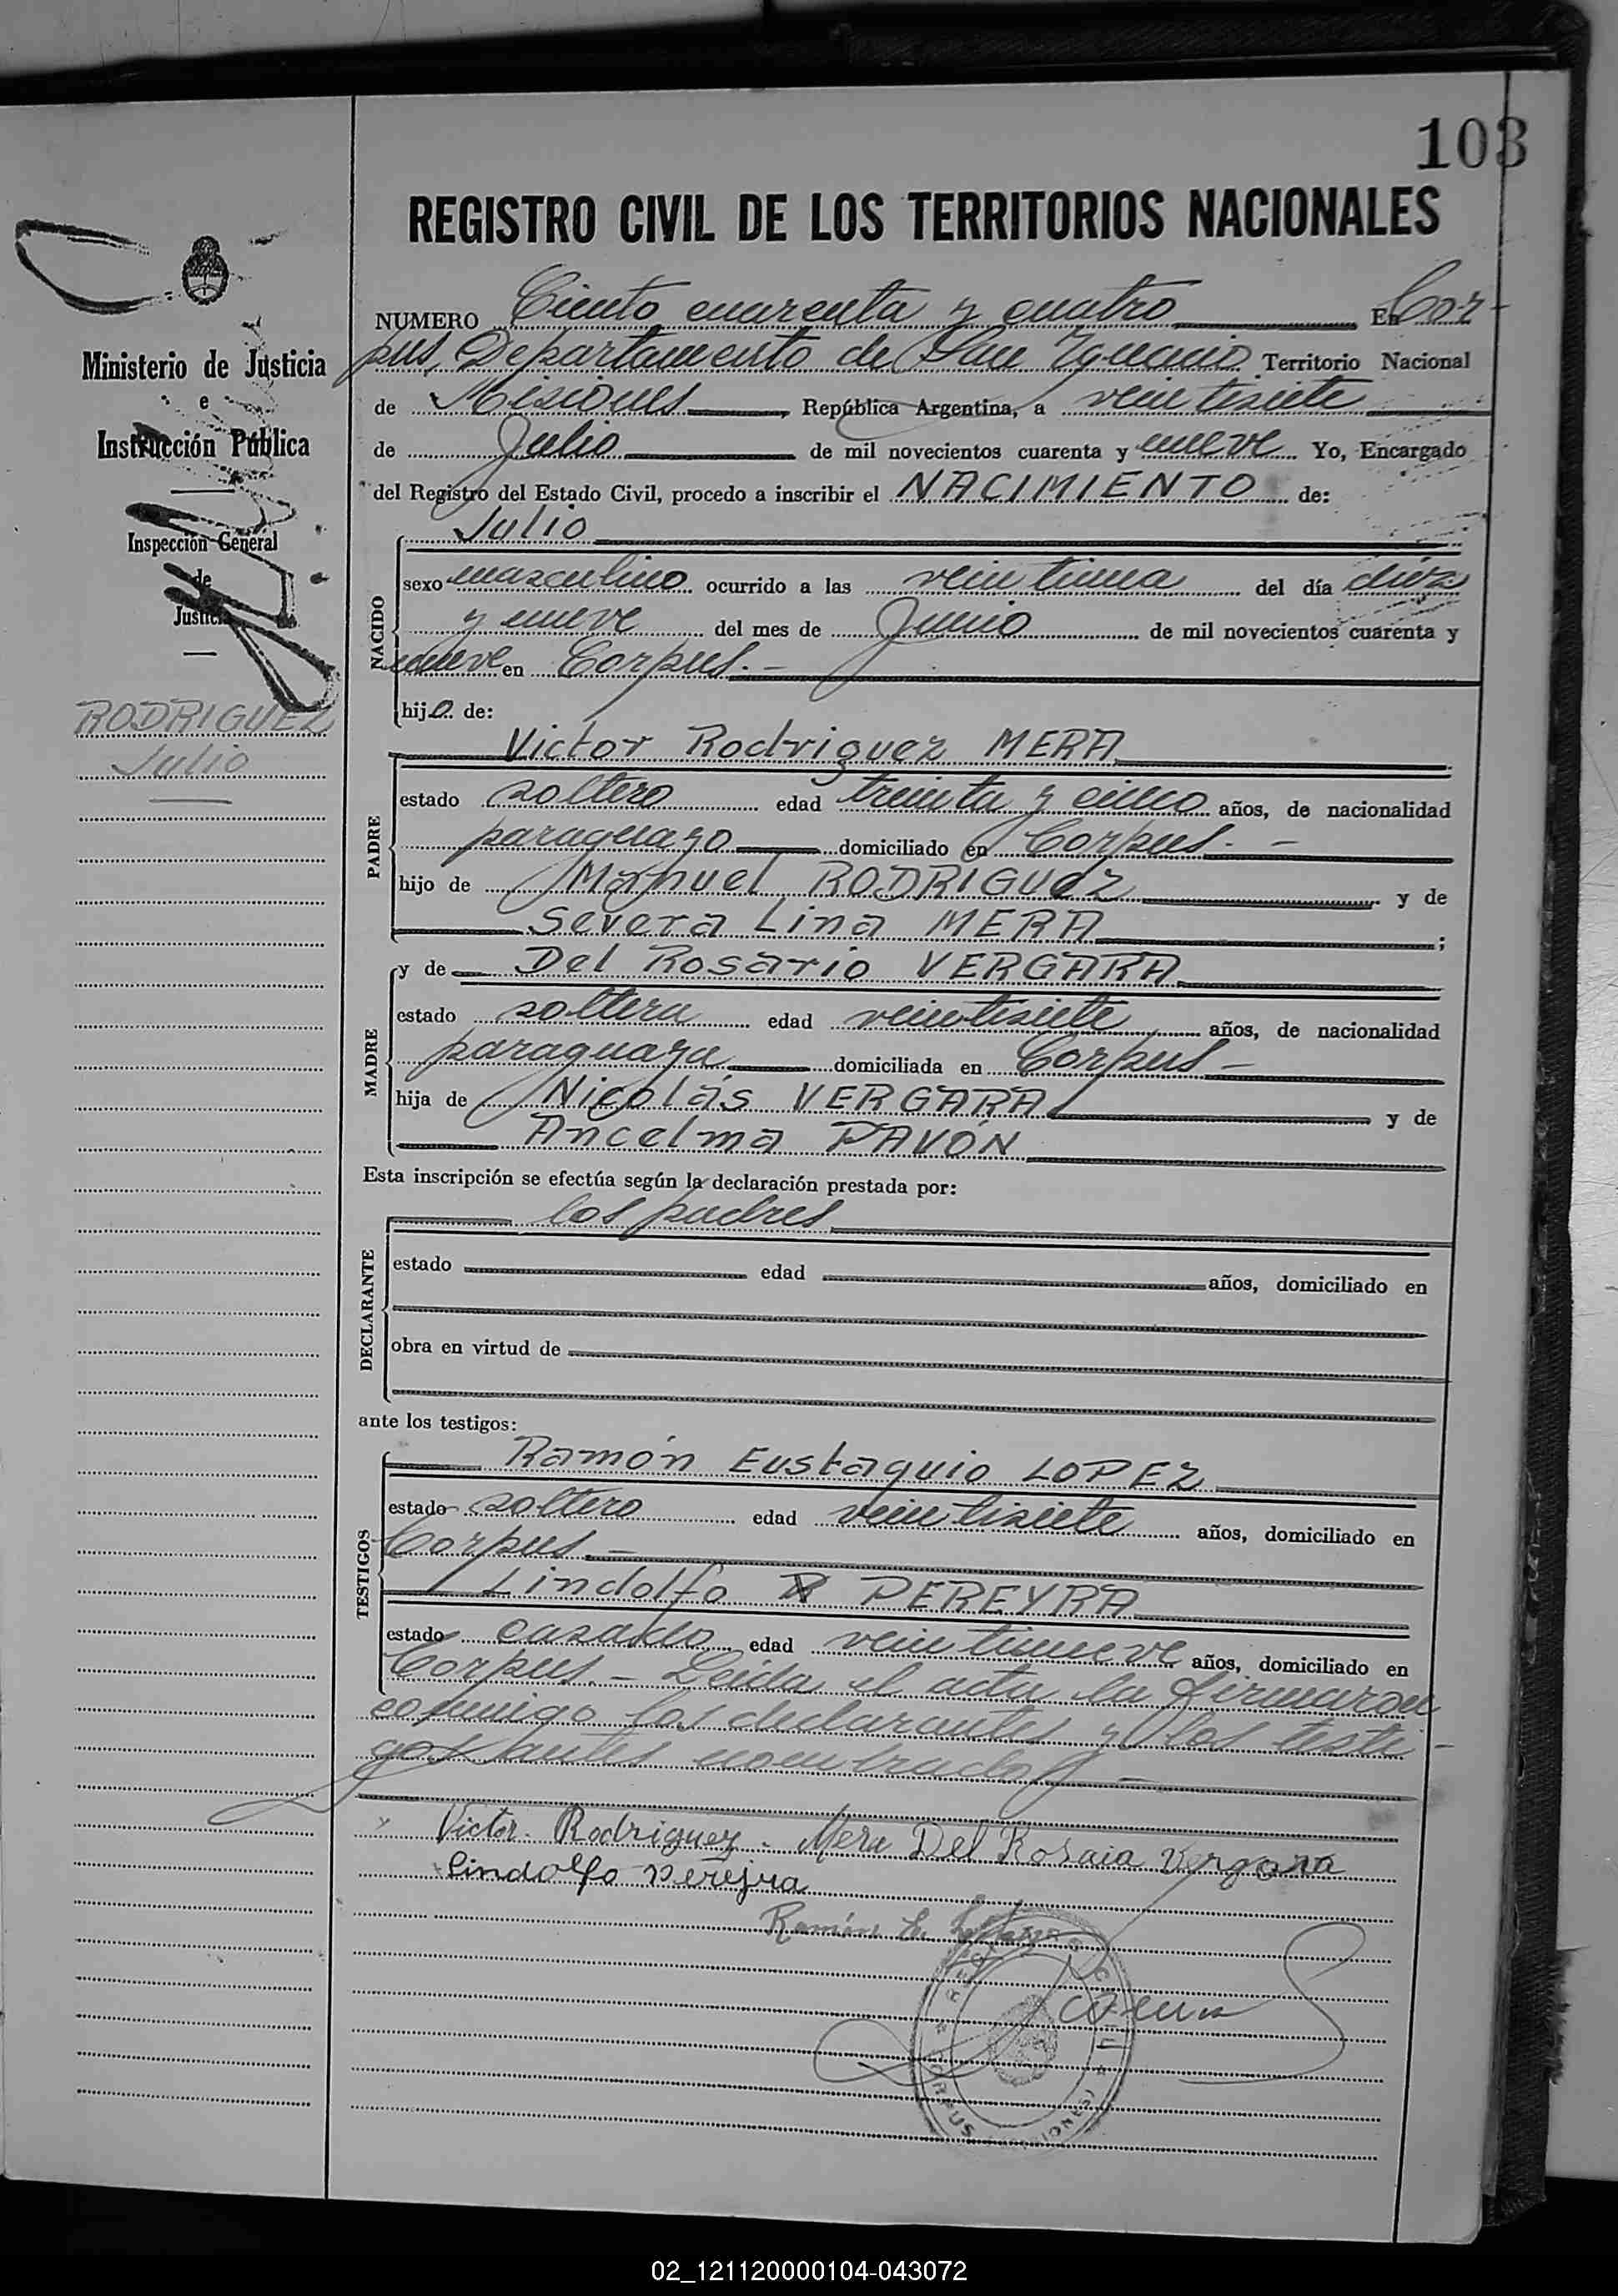 103
REGISTRO CIVIL DE LOS TERRITORIOS NACIONALES
Ministerio de Justicia
e
Instrucción Pública
Inspección General
de
Justicia
RODRIGUEZ
Julio
NUMERO Ciento cuarenta y cuatro En Cor-
pus, Departamento de San Ygnacio Territorio Nacional
de Misiones, República Argentina, a veintisiete
de Julio de mil novecientos cuarenta y nueve Yo, Encargado
del Registro del Estado Civil, procedo a inscribir el NACIMIENTO de:
Julio
NACIDO
sexo masculino ocurrido a las veintiuna del día diez
y nueve del mes de Junio de mil novecientos cuarenta y
nueve en Corpus.-
hijo de:
Victor Rodriguez MERA
PADRE
estado soltero edad treinta y cinco años, de nacionalidad
paraguayo domiciliado en Corpus.-
hijo de Manuel RODRIGUEZ y de
Severa Lina MERA;
MADRE
y de Del Rosario VERGARA
estado soltera edad veintisiete años, de nacionalidad
paraguaya domiciliada en Corpus-
hija de Nicolás VERGARA y de
Ancelma PAVÓN
Esta inscripción se efectúa según la declaración prestada por:
los padres
DECLARANTE
estado edad años, domiciliado en
obra en virtud de
ante los testigos:
TESTIGOS
Ramón Eustaquio LOPEZ
estado soltero edad veintisiete años, domiciliado en
Corpus-
Lindolfo PEREYRA
estado casado edad veintinueve años, domiciliado en
Corpus.- Leída el acta la firmaron
conmigo los declarantes y los testi-
gos antes nombrados-
Victor. Rodriguez. Mera Del Rosaia Vergara
Lindolfo Perejra
Ramón E.
CORPUS
02_121120000104-043072